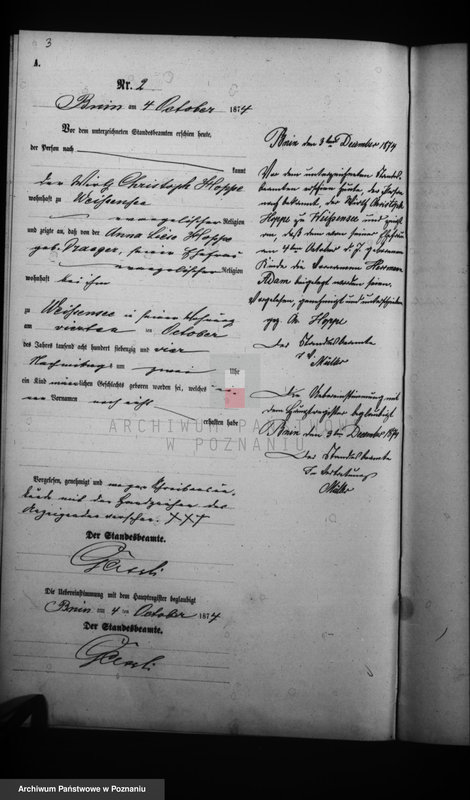 3
A.
Nr. 2
Bnin am 4 October 1874
Vor dem unterzeichneten Standesbeamten erschien heute,
der Person nach
kannt
der Wirth Christoph Hoppe
wohnhaft zu Weissensee
evangelischer Religion
und zeigte an, daß von der Anna Liese Hoppe
geb. Draeger, seiner Ehefrau
evangelischer Religion
wohnhaft bei ihm
zu Weissensee in seiner Wohnung
am vierten ten October
des Jahres tausend acht hundert siebenzig und vier
Nachmittags um zwei Uhr
ein Kind männlichen Geschlechts geboren worden sei, welches
Vornamen noch nicht
erhalten habe
Vorgelesen, genehmigt und wegen
mit dem Handzeichen des
Anzeigenden versehen. +++
Der Standesbeamte.
Die Uebereinstimmung mit dem Hauptregister beglaubigt
Bnin am 4 ten October 1874
Der Standesbeamte.
Bnin den 3ten December 1874
Vor dem unterzeichneten Standes-
beamten erschien heute, der Person
nach bekannt, der Wirth Christoph
Hoppe zu Weissensee und zeigte
an, daß dem von seiner Ehefrau
am 4ten October d. J. geborenen
Kinde die Vornamen Hermann
Adam beigelegt worden seien.
Vorgelesen, genehmigt und unterschrieben
gez. Hoppe
Der Standesbeamte
i. V.
Müller
Die Uebereinstimmung mit
dem Hauptregister beglaubigt
Bnin den 3ten December 1874
Der Standesbeamte
In Vertretung
Müller
ARCHIWUM PAŃSTWOWE
W POZNANIU
Archiwum Państwowe w Poznaniu